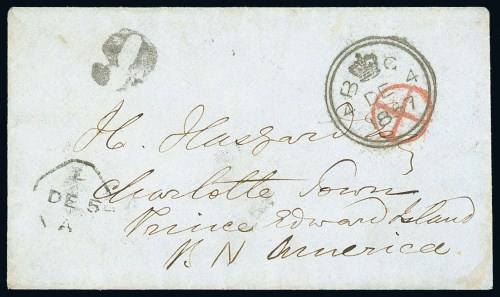 9
AB C
DE 4
1857
L
DE 5
A
H. Haszard
Charlotte Town
Prince Edward Island
B N America